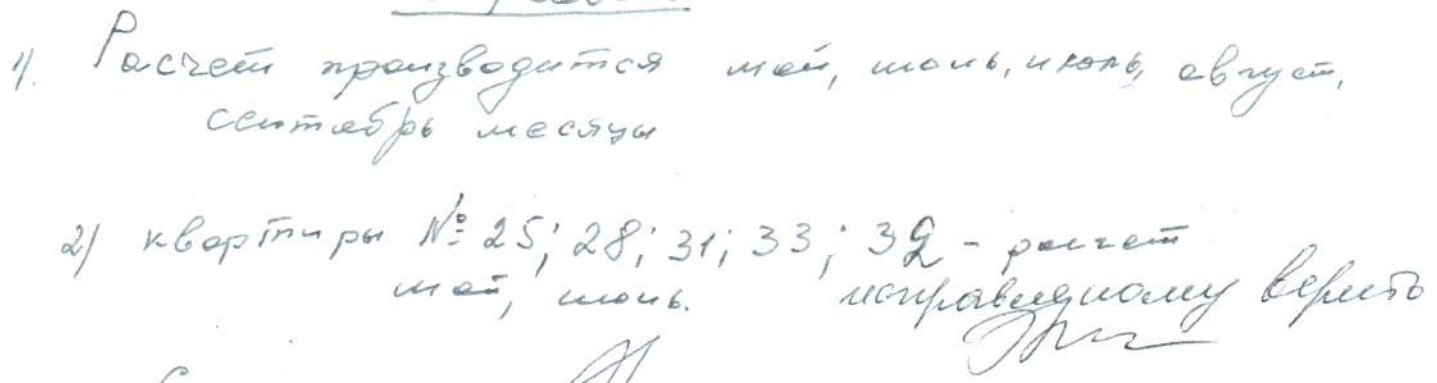 1). Расчет производится май, июнь, июль, август,
сентябрь месяцы
2) квартиры № 25; 28; 31; 33; 32 - расчет
май, июнь. исправленному верить